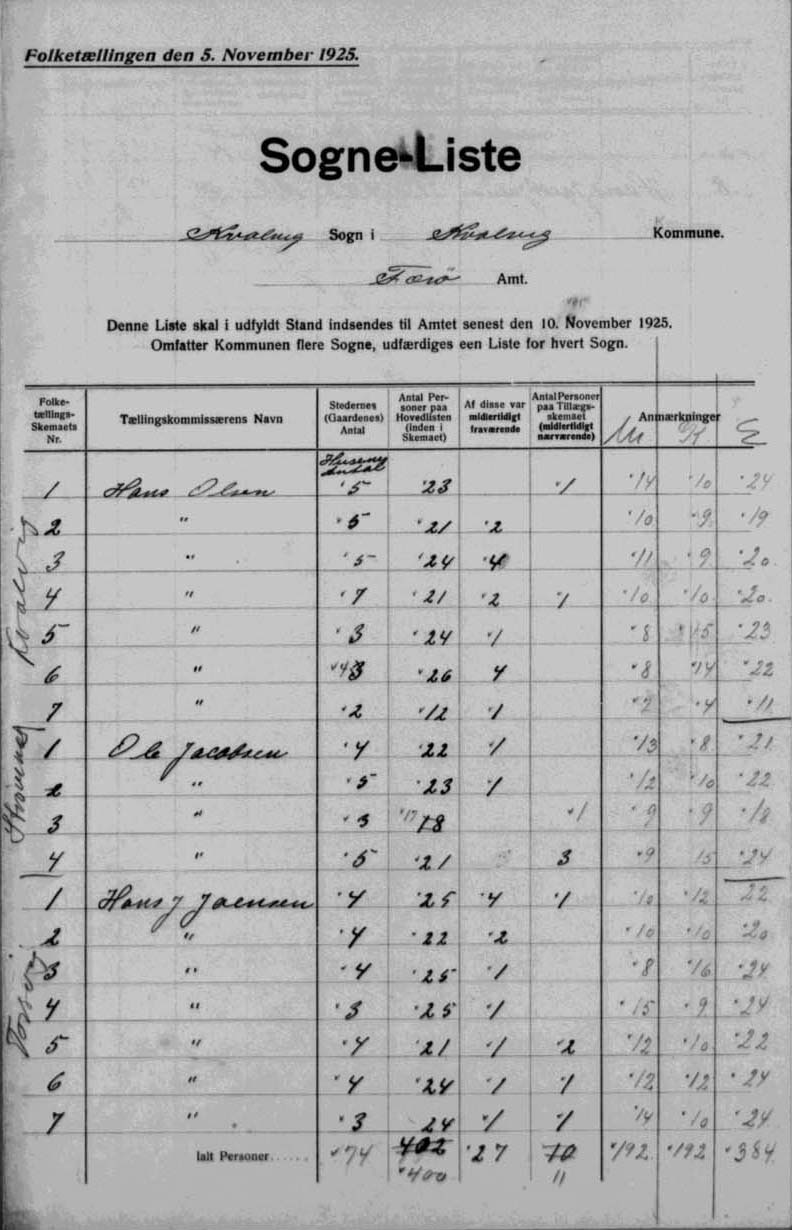 Folketællingen den 5. November 1925.
Sogne-Liste
Kvalvig Sogn i Kvalvig Kommune.
Færø Amt.
Denne Liste skal i udfyldt Stand indsendes til Amtet senest den 10. November 1925.
Omfatter Kommunen flere Sogne, udfærdiges een Liste for hvert Sogn.
Folketællings-Skemaets Nr. Tællingskommissærens Navn Stedernes (Gaardenes) Antal Antal Personer paa Hovedlisten (inden i Skemaet) Af disse var midlertidigt fraværende Antal Personer paa Tillægsskemaet (midlertidigt nærværende) Anmærkninger
M K E
Husenes Antal
Kvalvig
1 Hans Olsen 5 23 1 14 10 24
2 " 5 21 2 10 9 19
3 " 5 24 4 11 9 20
4 " 7 21 2 1 10 10 20
5 " 3 24 1 8 15 23
6 " 4 3 26 4 8 14 22
7 " 2 12 1 7 4 11
Strømnæs
1 Ole Jacobsen 4 22 1 13 8 21
2 " 5 23 1 12 10 22
3 " 3 17 18 1 9 9 18
4 " 5 21 3 9 15 24
Torsvig
1 Hans J Joensen 4 25 4 1 10 12 22
2 " 4 22 2 10 10 20
3 " 4 25 1 8 16 24
4 " 3 25 1 15 9 24
5 " 4 21 1 2 12 10 22
6 " 4 24 1 1 12 12 24
7 " 3 24 1 1 14 10 24
Ialt Personer 74 402 27 10 192 192 384
400 11